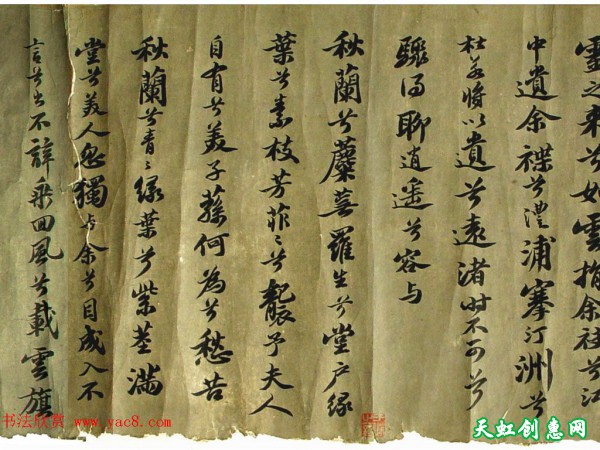 靈之来兮如雲捐余袂兮江
中遺余褋兮澧浦搴汀洲兮
杜若将以遺兮遠渚时不可兮
驟得聊逍遥兮容与
秋蘭兮蘪蕪羅生兮堂户緑
葉兮素枝芳菲〻兮襲予夫人
自有兮美子蓀何為兮愁苦
秋蘭兮青〻緑葉兮紫莖滿
堂兮美人忽獨与余兮目成入不
言兮出不辭乗回風兮載雲旗
书法欣赏 www.yac8.com
天虹创惠网